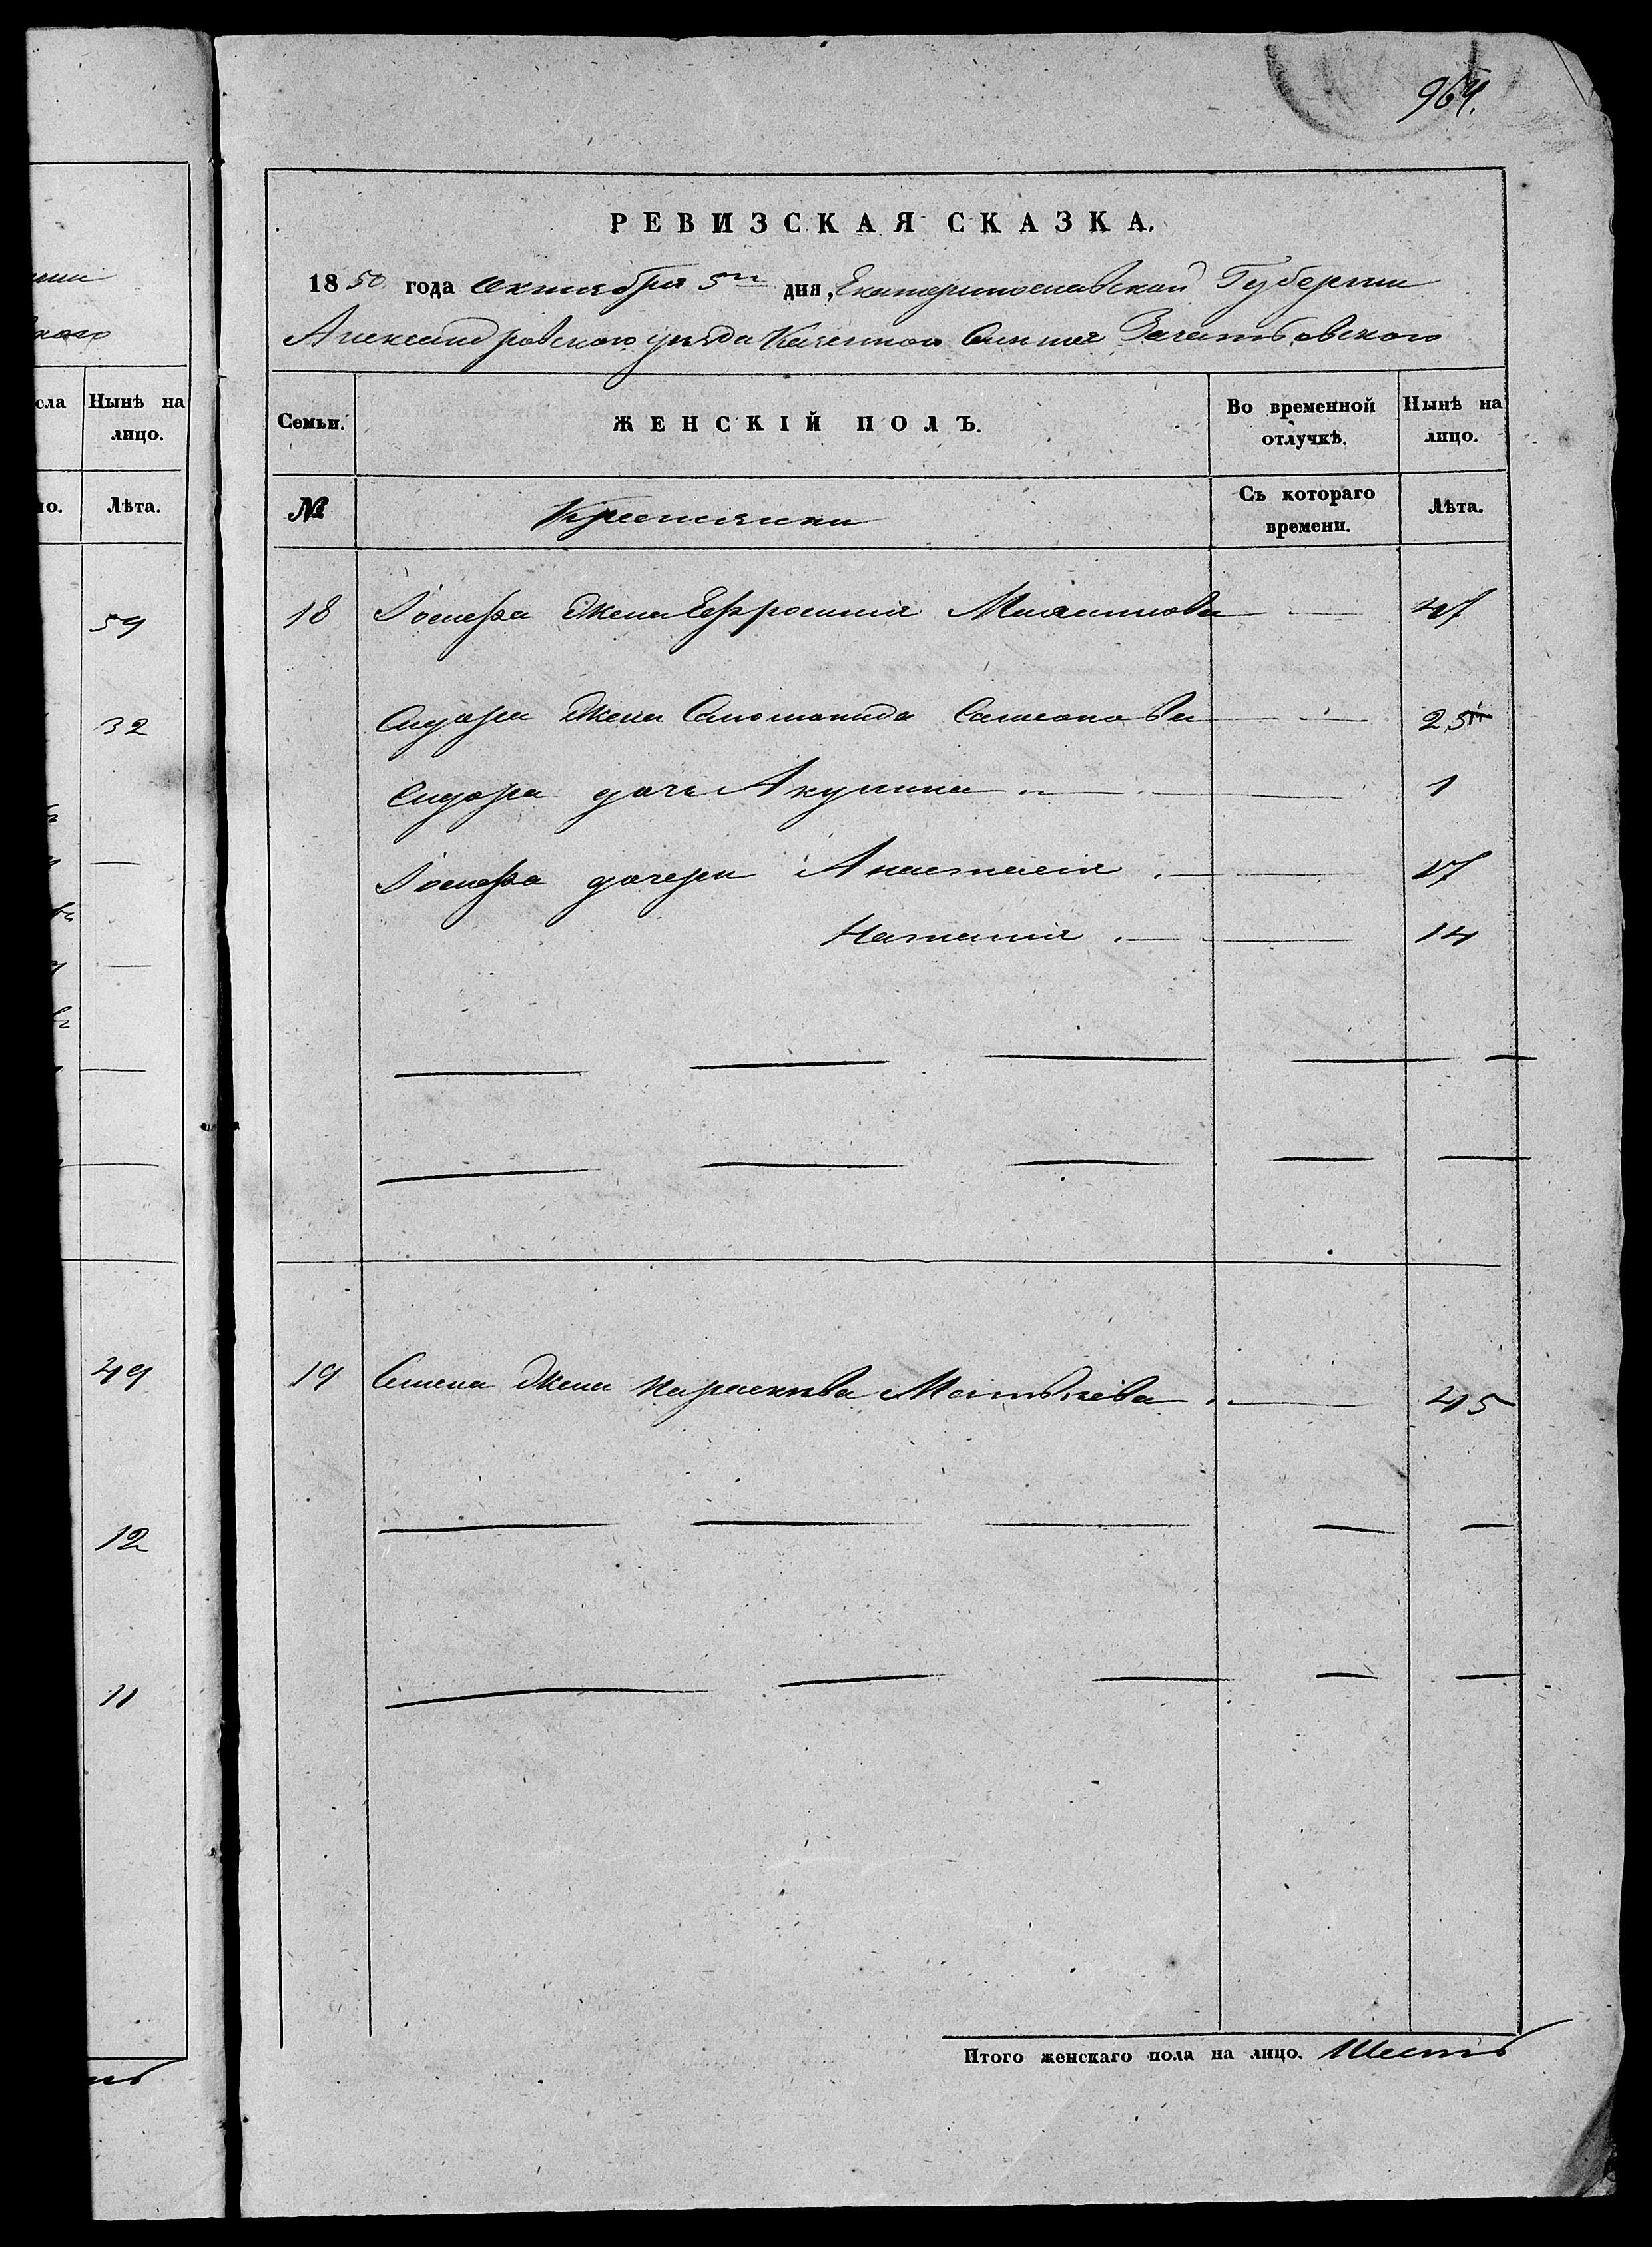 964.
РЕВИЗСКАЯ СКАЗКА.
1850 года Октября 5го дня, Екатеринославской Губернии
Александровского уѣзда Казенного Селенія Зачатьевского
сла
Нынѣ на лицо.
Семьи.
ЖЕНСКІЙ ПОЛЪ.
Во временной отлучкѣ.
Нынѣ на лицо.
Лѣта.
№
Крестьянки
Съ котораго времени.
Лѣта.
59
18 Іосифа жена Ефросинія 47
32
Сидора жена Соломонида Самсонова 25
Сидора дочь Акулина 1
Іосифа дочери Анастасія 17
Наталія 14
49
19 Семена жена Параскева Матвѣева 45
12
11
Итого женскаго пола на лицо. Шесть